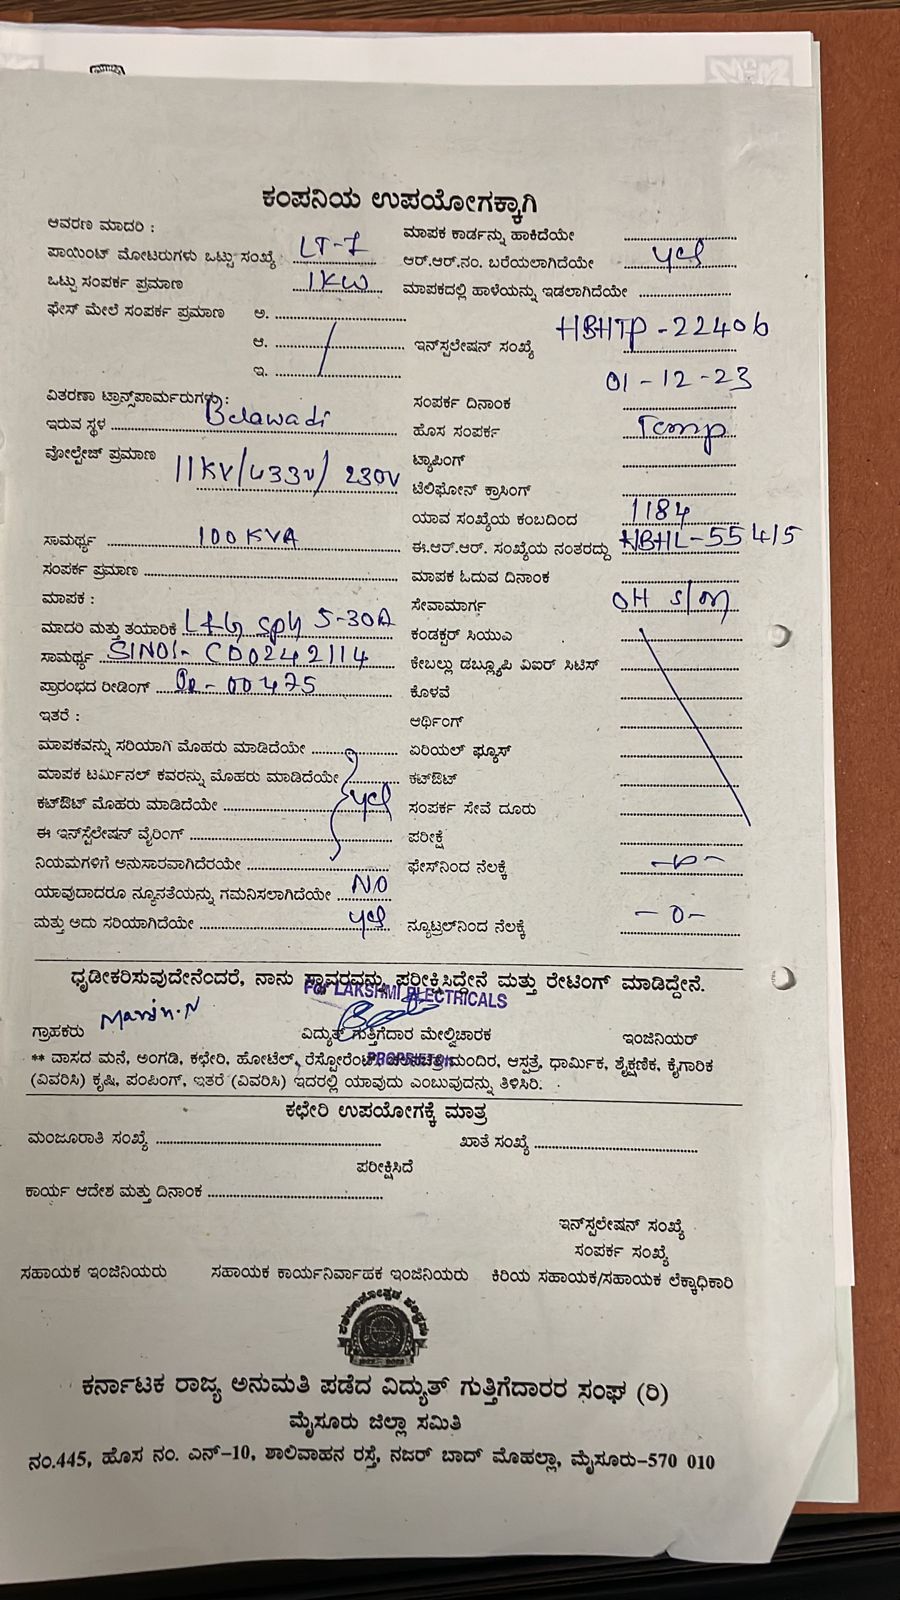 ಕಂಪನಿಯ ಉಪಯೋಗಕ್ಕಾಗಿ
ಆವರಣ ಮಾದರಿ :
ಮಾಪಕ ಕಾರ್ಡನ್ನು ಹಾಕಿದೆಯೇ
ಪಾಯಿಂಟ್ ಮೋಟರುಗಳು ಒಟ್ಟು ಸಂಖ್ಯೆ LT-7
ಆರ್.ಆರ್.ನಂ. ಬರೆಯಲಾಗಿದೆಯೇ yes
ಒಟ್ಟು ಸಂಪರ್ಕ ಪ್ರಮಾಣ 1KW
ಮಾಪಕದಲ್ಲಿ ಹಾಳೆಯನ್ನು ಇಡಲಾಗಿದೆಯೇ
ಫೇಸ್ ಮೇಲೆ ಸಂಪರ್ಕ ಪ್ರಮಾಣ ಅ.
ಆ.
ಇನ್‌ಸ್ಪಲೇಷನ್ ಸಂಖ್ಯೆ HBHTP-22406
ಇ.
ವಿತರಣಾ ಟ್ರಾನ್ಸ್‌ಪಾರ್ಮರುಗಳು :
ಸಂಪರ್ಕ ದಿನಾಂಕ 01-12-23
ಇರುವ ಸ್ಥಳ Belawadi
ಹೊಸ ಸಂಪರ್ಕ Temp
ವೋಲ್ಟೇಜ್ ಪ್ರಮಾಣ 11KV/433V/230V
ಟ್ಯಾಪಿಂಗ್
ಟೆಲಿಫೋನ್ ಕ್ರಾಸಿಂಗ್
ಯಾವ ಸಂಖ್ಯೆಯ ಕಂಬದಿಂದ 1184
ಸಾಮರ್ಥ್ಯ 100KVA
ಈ.ಆರ್.ಆರ್. ಸಂಖ್ಯೆಯ ನಂತರದ್ದು HBHL-55415
ಸಂಪರ್ಕ ಪ್ರಮಾಣ
ಮಾಪಕ ಓದುವ ದಿನಾಂಕ
ಮಾಪಕ :
ಸೇವಾಮಾರ್ಗ OH S/m
ಮಾದರಿ ಮತ್ತು ತಯಾರಿಕೆ L&G sph 5-30A
ಕಂಡಕ್ಟರ್ ಸಿಯುಎ
ಸಾಮರ್ಥ್ಯ SlNo:- CD0242114
ಕೇಬಲ್ಲು ಡಬ್ಲ್ಯೂಪಿ ವಿಐರ್ ಸಿಟಿಸ್
ಪ್ರಾರಂಭದ ರೀಡಿಂಗ್ 00475
ಕೊಳವೆ
ಇತರೆ :
ಅರ್ಥಿಂಗ್
ಮಾಪಕವನ್ನು ಸರಿಯಾಗಿ ಮೊಹರು ಮಾಡಿದೆಯೇ
ಏರಿಯಲ್ ಫ್ಯೂಸ್
ಮಾಪಕ ಟರ್ಮಿನಲ್ ಕವರನ್ನು ಮೊಹರು ಮಾಡಿದೆಯೇ
ಕಟ್‌ಔಟ್
ಕಟ್‌ಔಟ್ ಮೊಹರು ಮಾಡಿದೆಯೇ yes
ಸಂಪರ್ಕ ಸೇವೆ ದೂರು
ಈ ಇನ್‌ಸ್ಪೆಲೇಷನ್ ವೈರಿಂಗ್
ಪರೀಕ್ಷೆ
ನಿಯಮಗಳಿಗೆ ಅನುಸಾರವಾಗಿದೆರಯೇ
ಫೇಸ್‌ನಿಂದ ನೆಲಕ್ಕೆ -0-
ಯಾವುದಾದರೂ ನ್ಯೂನತೆಯನ್ನು ಗಮನಿಸಲಾಗಿದೆಯೇ NO
ಮತ್ತು ಅದು ಸರಿಯಾಗಿದೆಯೇ yes
ನ್ಯೂಟ್ರಲ್‌ನಿಂದ ನೆಲಕ್ಕೆ -0-
ಧೃಡೀಕರಿಸುವುದೇನೆಂದರೆ, ನಾನು ಸ್ಥಾವರವನ್ನು ಪರೀಕ್ಷಿಸಿದ್ದೇನೆ ಮತ್ತು ರೇಟಿಂಗ್ ಮಾಡಿದ್ದೇನೆ.
FOR LAKSHMI ELECTRICALS
ಗ್ರಾಹಕರು
ವಿದ್ಯುತ್ ಗುತ್ತಿಗೆದಾರ ಮೇಲ್ವಿಚಾರಕ
ಇಂಜಿನಿಯರ್
PROPRIETOR
** ದಾಸದ ಮನೆ, ಅಂಗಡಿ, ಕಛೇರಿ, ಹೋಟೆಲ್, ರೆಸ್ಟೋರೆಂಟ್, ಚಲನಚಿತ್ರ ಮಂದಿರ, ಆಸ್ಪತ್ರೆ, ಧಾರ್ಮಿಕ, ಶೈಕ್ಷಣಿಕ, ಕೈಗಾರಿಕ
(ವಿವರಿಸಿ) ಕೃಷಿ, ಪಂಪಿಂಗ್, ಇತರೆ (ವಿವರಿಸಿ) ಇದರಲ್ಲಿ ಯಾವುದು ಎಂಬುವುದನ್ನು ತಿಳಿಸಿರಿ.
ಕಛೇರಿ ಉಪಯೋಗಕ್ಕೆ ಮಾತ್ರ
ಮಂಜೂರಾತಿ ಸಂಖ್ಯೆ
ಖಾತೆ ಸಂಖ್ಯೆ
ಪರೀಕ್ಷಿಸಿದೆ
ಕಾರ್ಯ ಆದೇಶ ಮತ್ತು ದಿನಾಂಕ
ಇನ್‌ಸ್ಪಲೇಷನ್ ಸಂಖ್ಯೆ
ಸಂಪರ್ಕ ಸಂಖ್ಯೆ
ಸಹಾಯಕ ಇಂಜಿನಿಯರು
ಸಹಾಯಕ ಕಾರ್ಯನಿರ್ವಾಹಕ ಇಂಜಿನಿಯರು
ಕಿರಿಯ ಸಹಾಯಕ/ಸಹಾಯಕ ಲೆಕ್ಕಾಧಿಕಾರಿ
ಕರ್ನಾಟಕ ರಾಜ್ಯ ಅನುಮತಿ ಪಡೆದ ವಿದ್ಯುತ್ ಗುತ್ತಿಗೆದಾರರ ಸಂಘ (ರಿ)
ಮೈಸೂರು ಜಿಲ್ಲಾ ಸಮಿತಿ
ನಂ.445, ಹೊಸ ನಂ. ಎನ್-10, ಶಾಲಿವಾಹನ ರಸ್ತೆ, ನಜರ್ ಬಾದ್ ಮೊಹಲ್ಲಾ, ಮೈಸೂರು-570 010